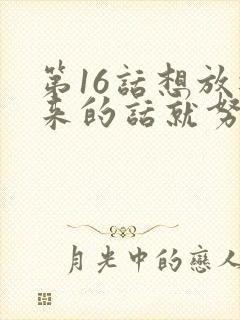 第16話想放
来的話就努
月光中的戀人